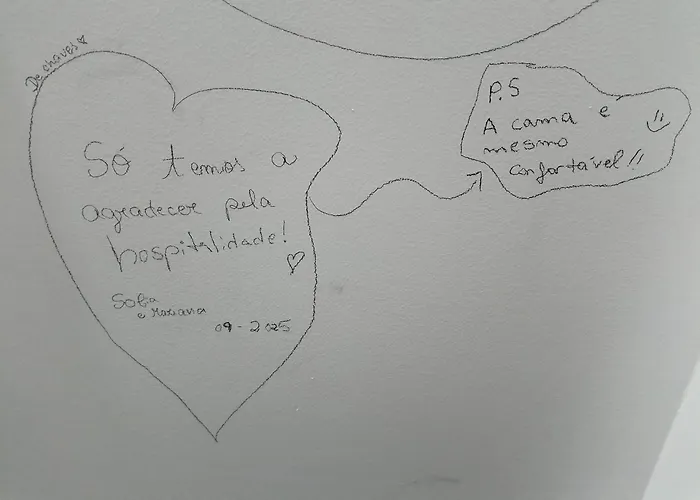 De chaves ♡
Só temos a
agradecer pela
hospitalidade!
♡
Sofia
e Mariana
09-2025
P.S
A cama é
mesmo
confortável!!